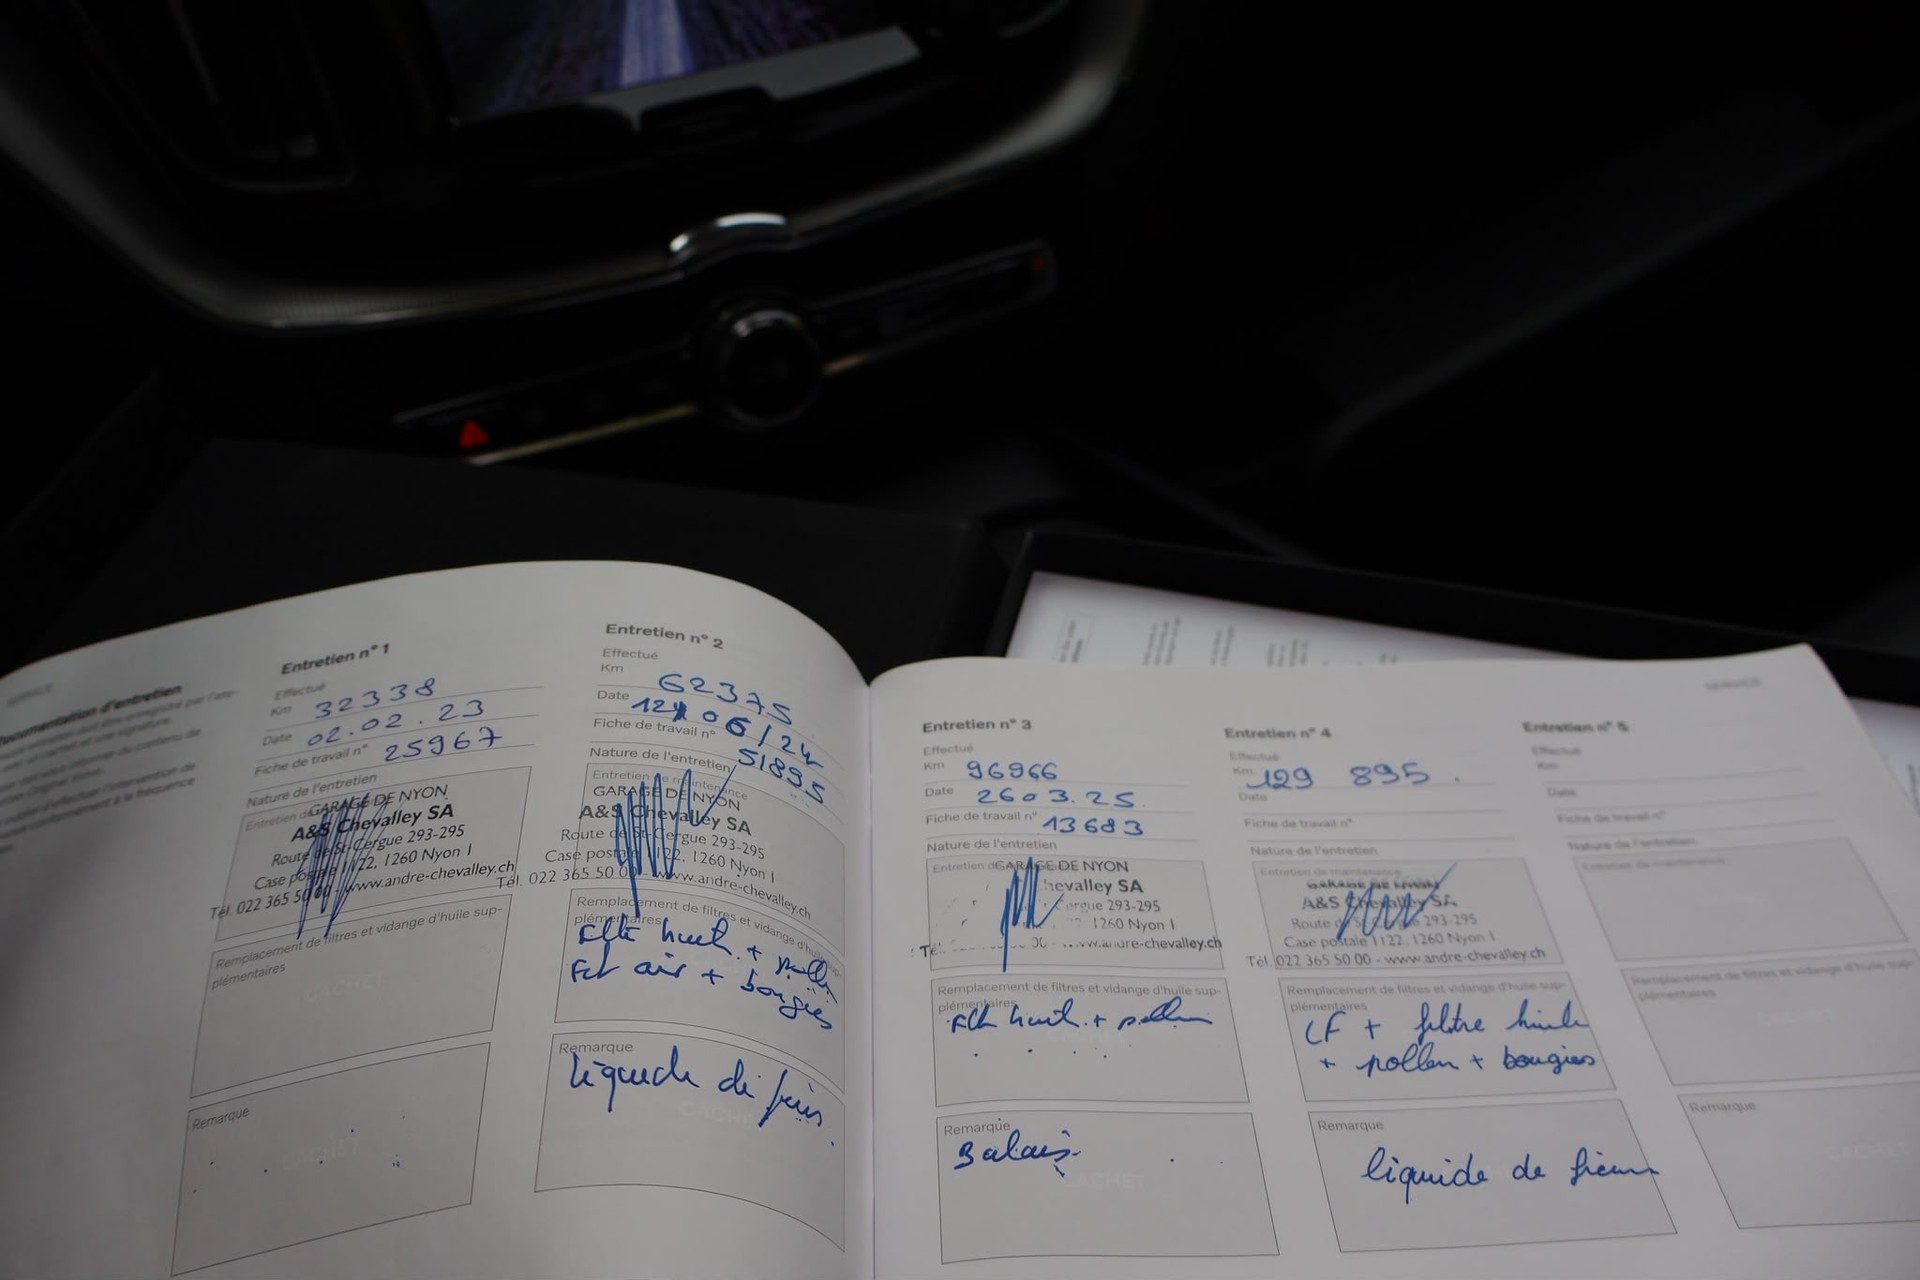 SERVICE
Documentation d'entretien
Entretien n° 1
Effectué
Km 32338
Date 02.02.23
Fiche de travail n° 25967
Nature de l'entretien
GARAGE DE NYON
A&S Chevalley SA
Route de St-Cergue 293-295
Case postale 1122, 1260 Nyon 1
Tél. 022 365 50 00 - www.andre-chevalley.ch
Remplacement de filtres et vidange d'huile sup-
plémentaires
CACHET
Remarque
CACHET
Entretien n° 2
Effectué
Km 62375
Date 06/24
Fiche de travail n° 51895
Nature de l'entretien
Entretien de maintenance
GARAGE DE NYON
A&S Chevalley SA
Route de St-Cergue 293-295
Case postale 1122, 1260 Nyon 1
Tél. 022 365 50 00 - www.andre-chevalley.ch
Remplacement de filtres et vidange d'huile sup-
plémentaires
air + bougies
Remarque
liquide de
CACHET
SERVICE
Entretien n° 3
Effectué
Km 96966
Date 26 03.25
Fiche de travail n° 13683
Nature de l'entretien
GARAGE DE NYON
Chevalley SA
Cergue 293-295
1260 Nyon 1
www.andre-chevalley.ch
Remplacement de filtres et vidange d'huile sup-
plémentaires
+ pollen
Remarque
Balais
CACHET
Entretien n° 4
Effectué
Km 129 895.
Date
Fiche de travail n°
Nature de l'entretien
Entretien de maintenance
GARAGE DE NYON
A&S Chevalley SA
Route de St-Cergue 293-295
Case postale 1122, 1260 Nyon 1
Tél. 022 365 50 00 - www.andre-chevalley.ch
Remplacement de filtres et vidange d'huile sup-
plémentaires
+ filtre huile
+ pollen + bougies
Remarque
liquide de frein
Entretien n° 5
Effectué
Km
Date
Fiche de travail n°
Nature de l'entretien
Entretien de maintenance
Remplacement de filtres et vidange d'huile sup-
plémentaires
Remarque
CACHET